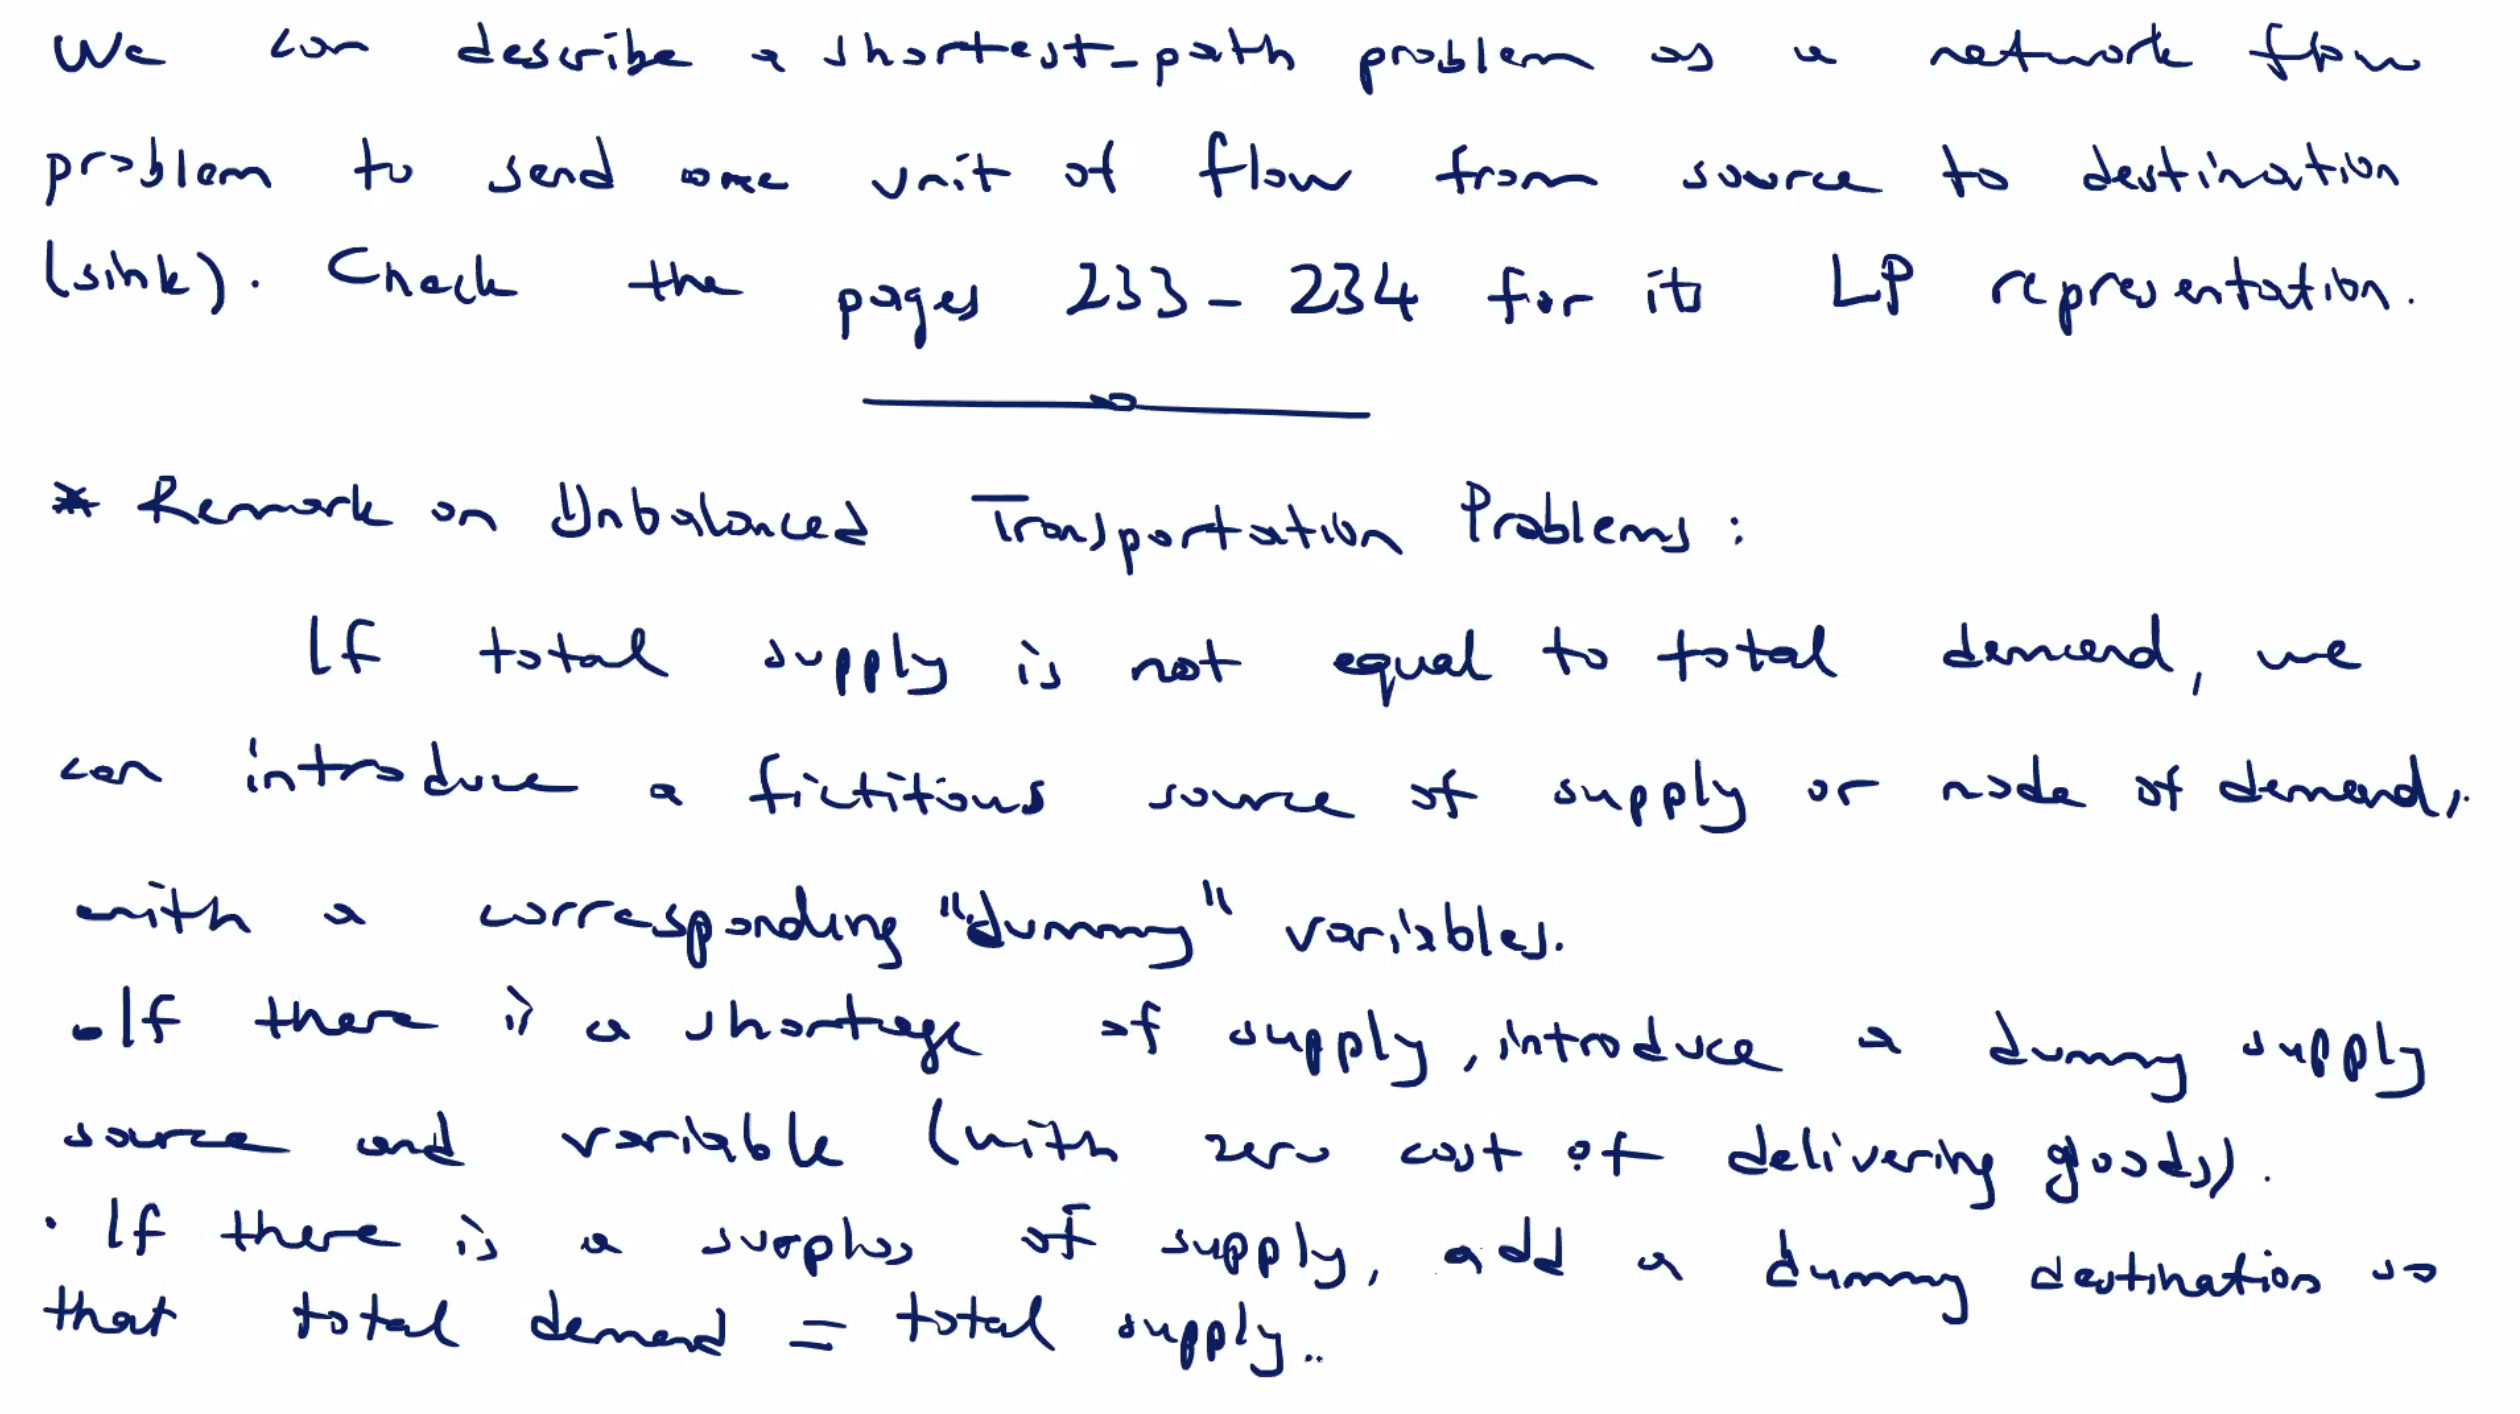 We can describe a shortest-path problem as a network flow
problem to send one unit of flow from source to destination
(sink). Check the pages 233-234 for its LP representation.
* Remark on Unbalanced Transportation Problems:
If total supply is not equal to total demand, we
can introduce a fictitious source of supply or node of demand,
with a corresponding "dummy" variables.
. If there is a shortage of supply, introduce a dummy supply
source and variable (with zero cost of delivering goods).
. If there is a surplus of supply, add a dummy destination so
that total demand = total supply..